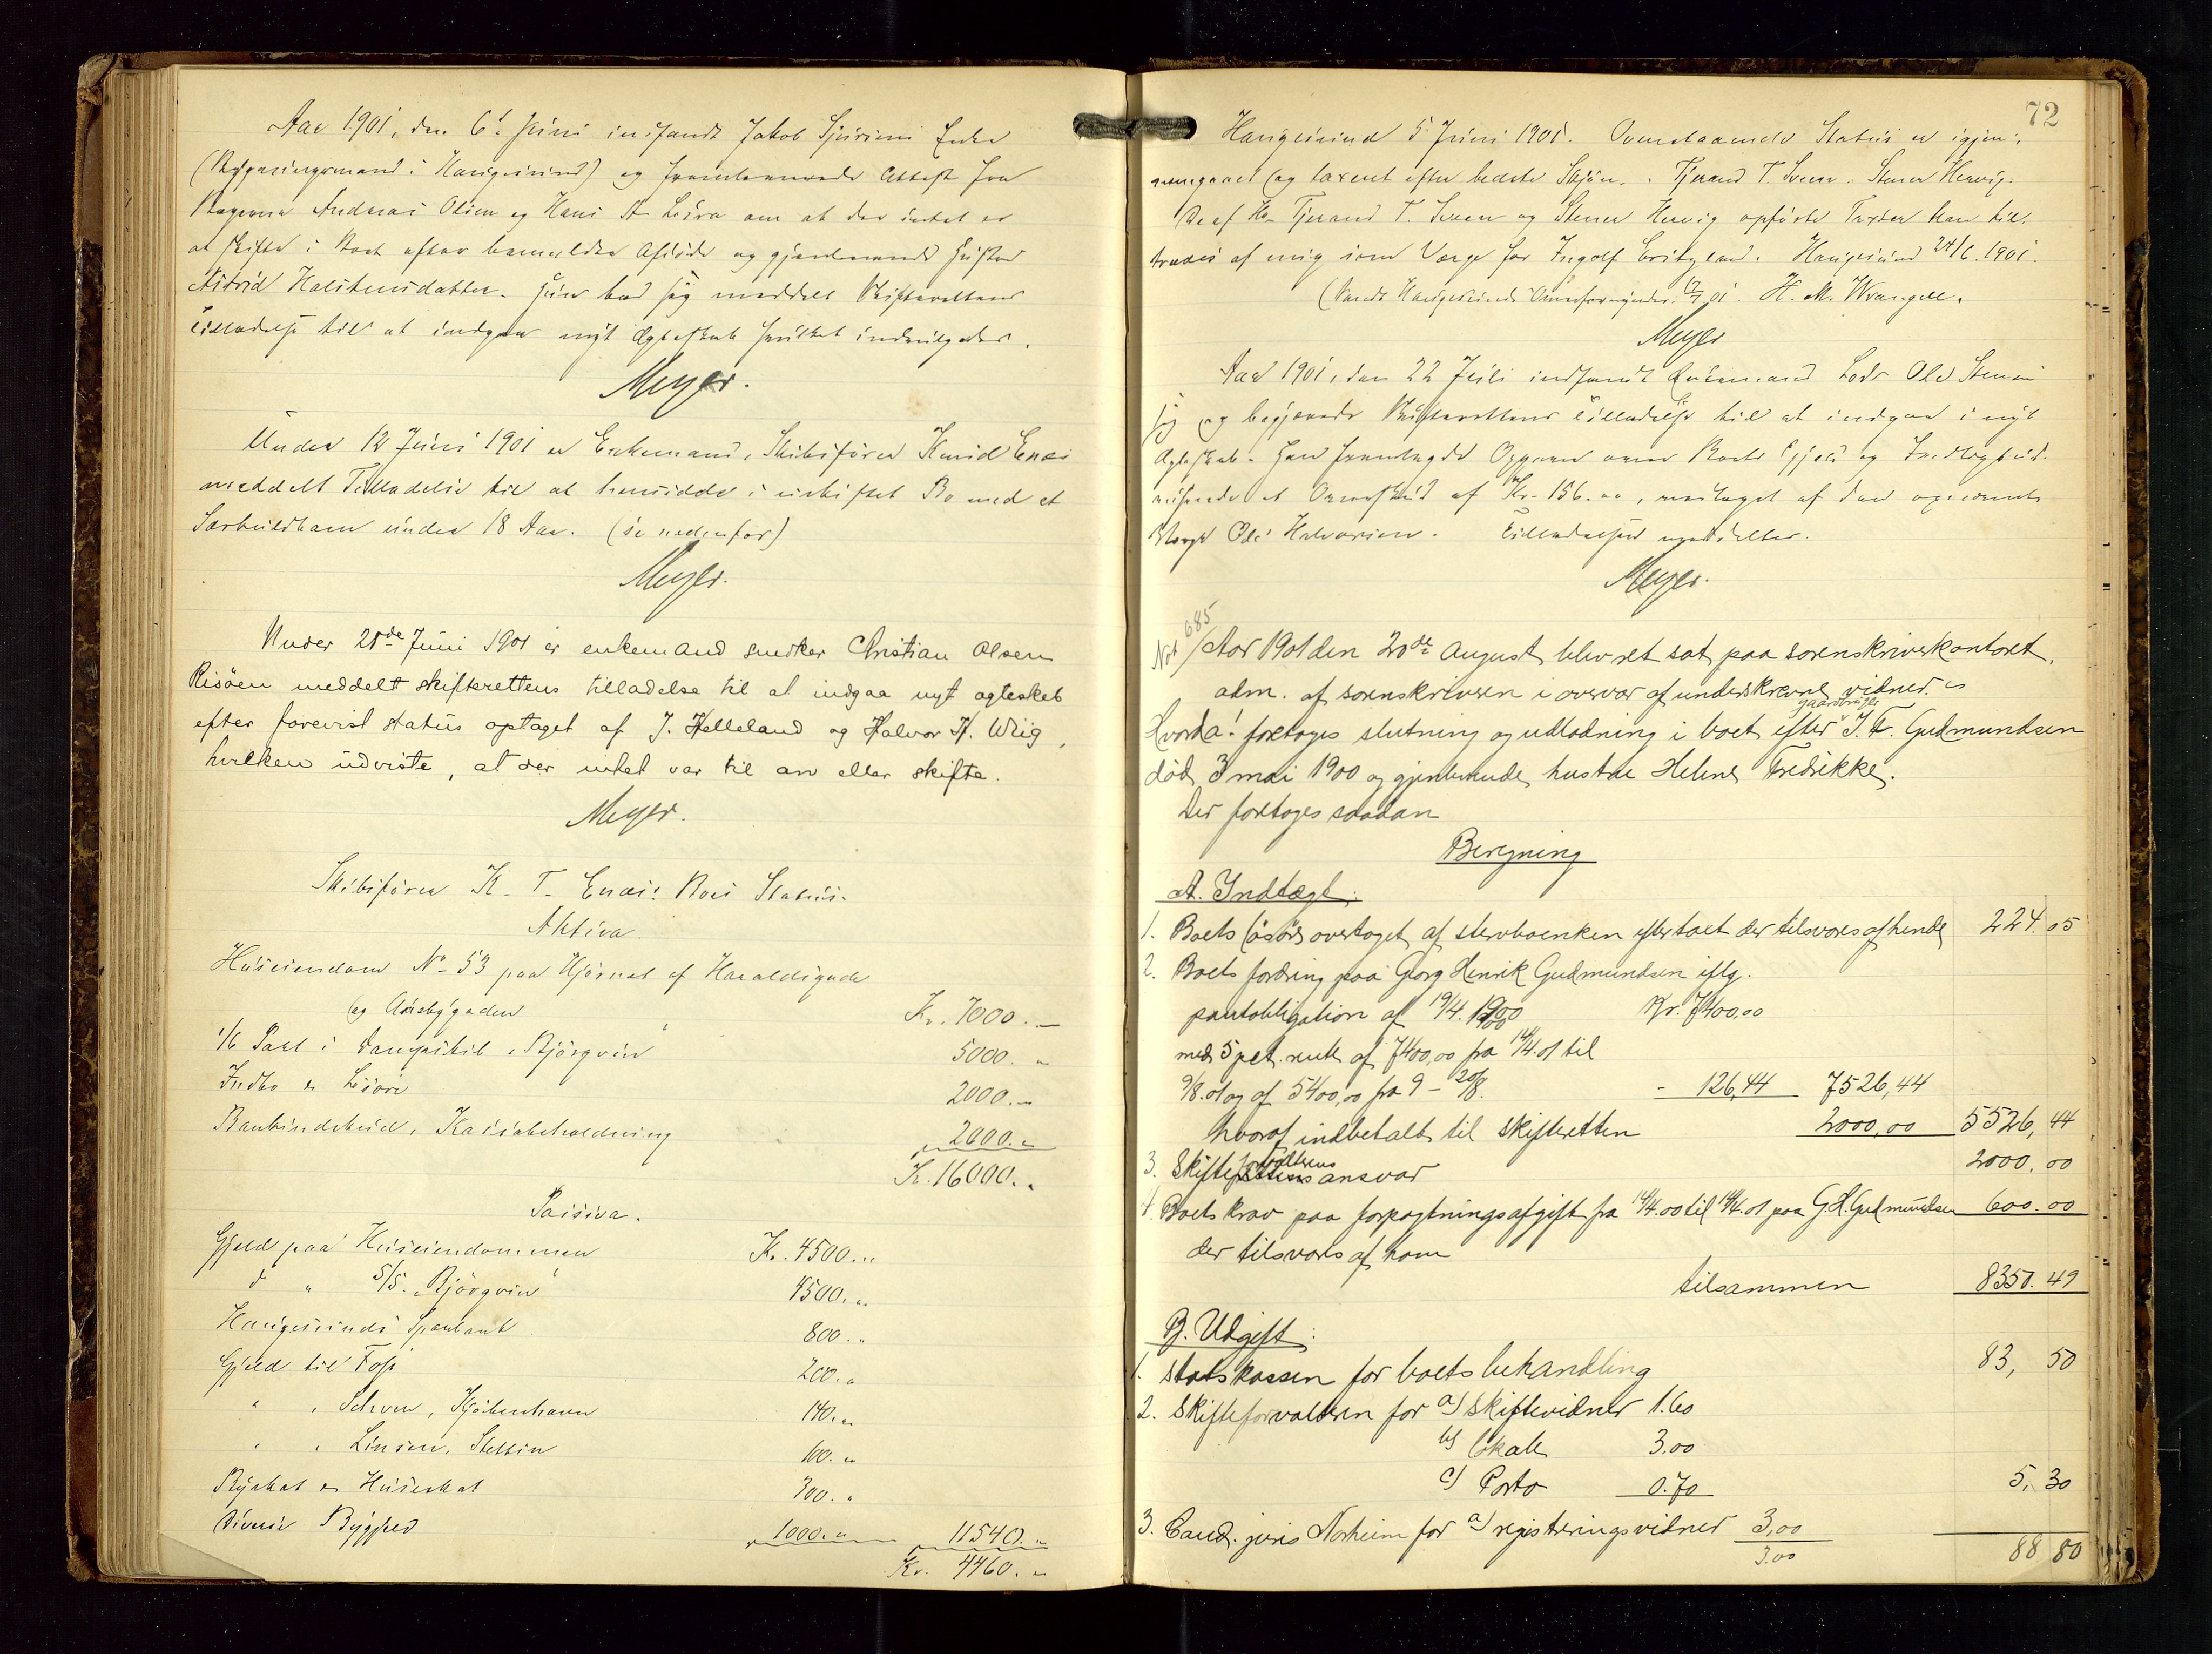 Aar 1901, den 6te Juni indfandt Jakob Sjursens Enke
(Bygningsmand i Haugesund) og fremlagde Attest fra
Andreas Olsen og Hans A. om at der intet er
at skifte i Boet efter bemeldte Afdøde og gjenlevende Hustru
Astrid Halstensdatter. Hun bad sig meddelt Skifterettens
Tilladelse til at indgaa nyt Ægteskab hvilket indvilgedes.
Meyer.
Under 12 Juni 1901 er Enkemand, Skibsfører Knud Enæs
meddelt Tilladelse til at hensidde i uskiftet Bo med et
Særkuldbarn under 18 Aar. (se nedenfor)
Meyer.
Under 21de Juni 1901 er enkemand snedker Christian Olsen
Risøen meddelt skifterettens tilladelse til at indgaa nyt ægteskab
efter forevist status optaget af J. Helleland og Halvor H. Wiig,
hvilken udviste, at der intet var til arv eller skifte.
Meyer.
Skibsfører K. T. Enæs' Boes Status.
Aktiva.
Huseiendom No 53 paa Hjørnet af Haraldsgade
og Aasbygaden Kr. 7000. –
1/6 Part i Dampskib "Bjørgvin" 5000. "
Indbo & Løsøre 2000. –
Bankindskud, Kassabeholdning " 2000. "
Kr. 16000. "
Passiva.
Gjæld paa Huseiendommen Kr. 4500. "
do " S/S. "Bjørgvin" 4500. "
Haugesunds Sparbank 800. "
Gjæld til Foss 200. "
" " Schven, Kjøbenhavn 140. "
" " Linsen, Stettin 100. "
Byskat & Husskat 300. "
Diverse Bygjæld " 1000. " " 11540. "
Kr. 4460. "
72
Haugesund 5 Juni 1901. Ovenstaaende Status er igjen-
nemgaaet og taxeret efter bedste Skjøn. Tjerand T. Sveen. Stener Hervig.
De af Hr Tjerand T. Sveen og Stener Hervig opførte Taxter kan til-
trædes af mig som Værge for Ingolf. Haugesund 24/6. 1901.
(Sendt Haugesunds Overformynderi 17/7 01. H. M. Wrangell.
Meyer
Aar 1901, den 22 Juli indfandt Enkemand Lods Ole Stensen
sig og begjærede Skifterettens Tilladelse til at indgaa i nyt
Ægteskab. Han fremlagde Opgave over Boets Gjæld og
visende et Overskud af Kr. 156.00, modtaget af den opnævnte
Værge Ole Halvorsen. Tilladelsen meddeltes.
Meyer.
Not 685
Aar 1901 den 20de August blev ret sat paa sorenskriverkontoret,
adm. af sorenskriveren i overvær af underskrevne vidner.
Hvorda! foretoges slutning og udlodning i boet efter gaardbruger J. F. Gudmundsen
død 3 mai 1900 og gjenlevende hustru Helene Fredrikke.
Der foretoges saadan
Beregning
A. Indtægt:
1. Boets løsøre overtaget af stervboenken efter taxt der tilsvares af hende 224.05
2. Boets fordring paa Georg Henrik Gudmundsen iflg.
pantobligation af 19/4. 1900 Kr. 7400,00
med 5 pct. rente af 7400,00 fra 14/4.01 til
9/8.01 og af 5400,00 fra 9 – 20/8. - 126,44 7526,44
hvoraf indbetalt til skifteretten 2000,00 5526,44
3. Skifteforvalterens ansvar 2000.00
4. Boets krav paa forpagtningsafgift fra 14/4.00 til 14/4.01 paa G. H. Gudmundsen 600.00
der tilsvares af ham
tilsammen 8350.49
B. Udgift:
1. Statskassen for boets behandling 83,50
2. Skifteforvalteren for a) skiftevidner 1.60
b) lokale 3.00
c) Porto 0.70 5,30
3. Cand. juris Norheim for a) registreringsvidner 3,00
3.00 88 80